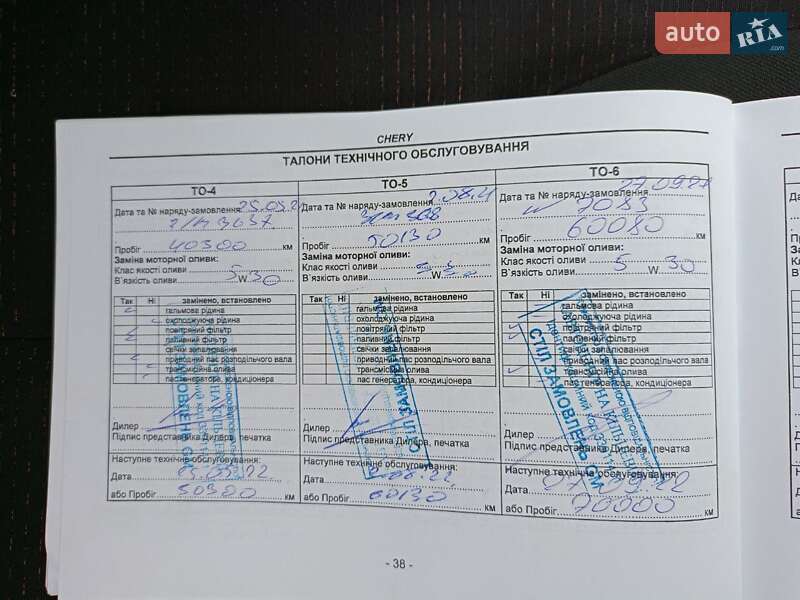 auto RIA.com
CHERY
ТАЛОНИ ТЕХНІЧНОГО ОБСЛУГОВУВАННЯ
ТО-4
Дата та № наряду-замовлення 25.05.21
Пробіг 40300 км
Заміна моторної оливи:
Клас якості оливи
В`язкість оливи 5 W 30
Так Ні замінено, встановлено
гальмова рідина
охолоджуюча рідина
повітряний фільтр
паливний фільтр
свічки запалювання
приводний пас розподільчого вала
трансмісійна олива
пас генератора, кондиціонера
Дилер
Підпис представника Дилера, печатка
Наступне технічне обслуговування:
Дата
або Пробіг 50300 км
ТО-5
Дата та № наряду-замовлення
Пробіг 50130 км
Заміна моторної оливи:
Клас якості оливи
В`язкість оливи W
Так Ні замінено, встановлено
гальмова рідина
охолоджуюча рідина
повітряний фільтр
паливний фільтр
свічки запалювання
приводний пас розподільчого вала
трансмісійна олива
пас генератора, кондиціонера
Дилер
Підпис представника Дилера, печатка
Наступне технічне обслуговування:
Дата
або Пробіг 60130 км
ТО-6
Дата та № наряду-замовлення 27.09.21
7083
Пробіг 60080 км
Заміна моторної оливи:
Клас якості оливи
В`язкість оливи 5 W 30
Так Ні замінено, встановлено
гальмова рідина
охолоджуюча рідина
повітряний фільтр
паливний фільтр
свічки запалювання
приводний пас розподільчого вала
трансмісійна олива
пас генератора, кондиціонера
СТІЛ ЗАМОВЛЕНЬ
Дилер
Підпис представника Дилера, печатка
Наступне технічне обслуговування:
Дата
або Пробіг 70000 км
- 38 -